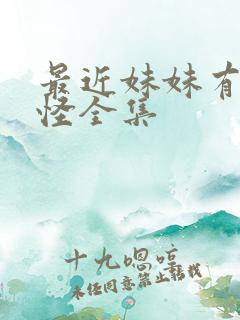 最近妹妹有
怪全集
十九嗯哼
未经同意禁止转载